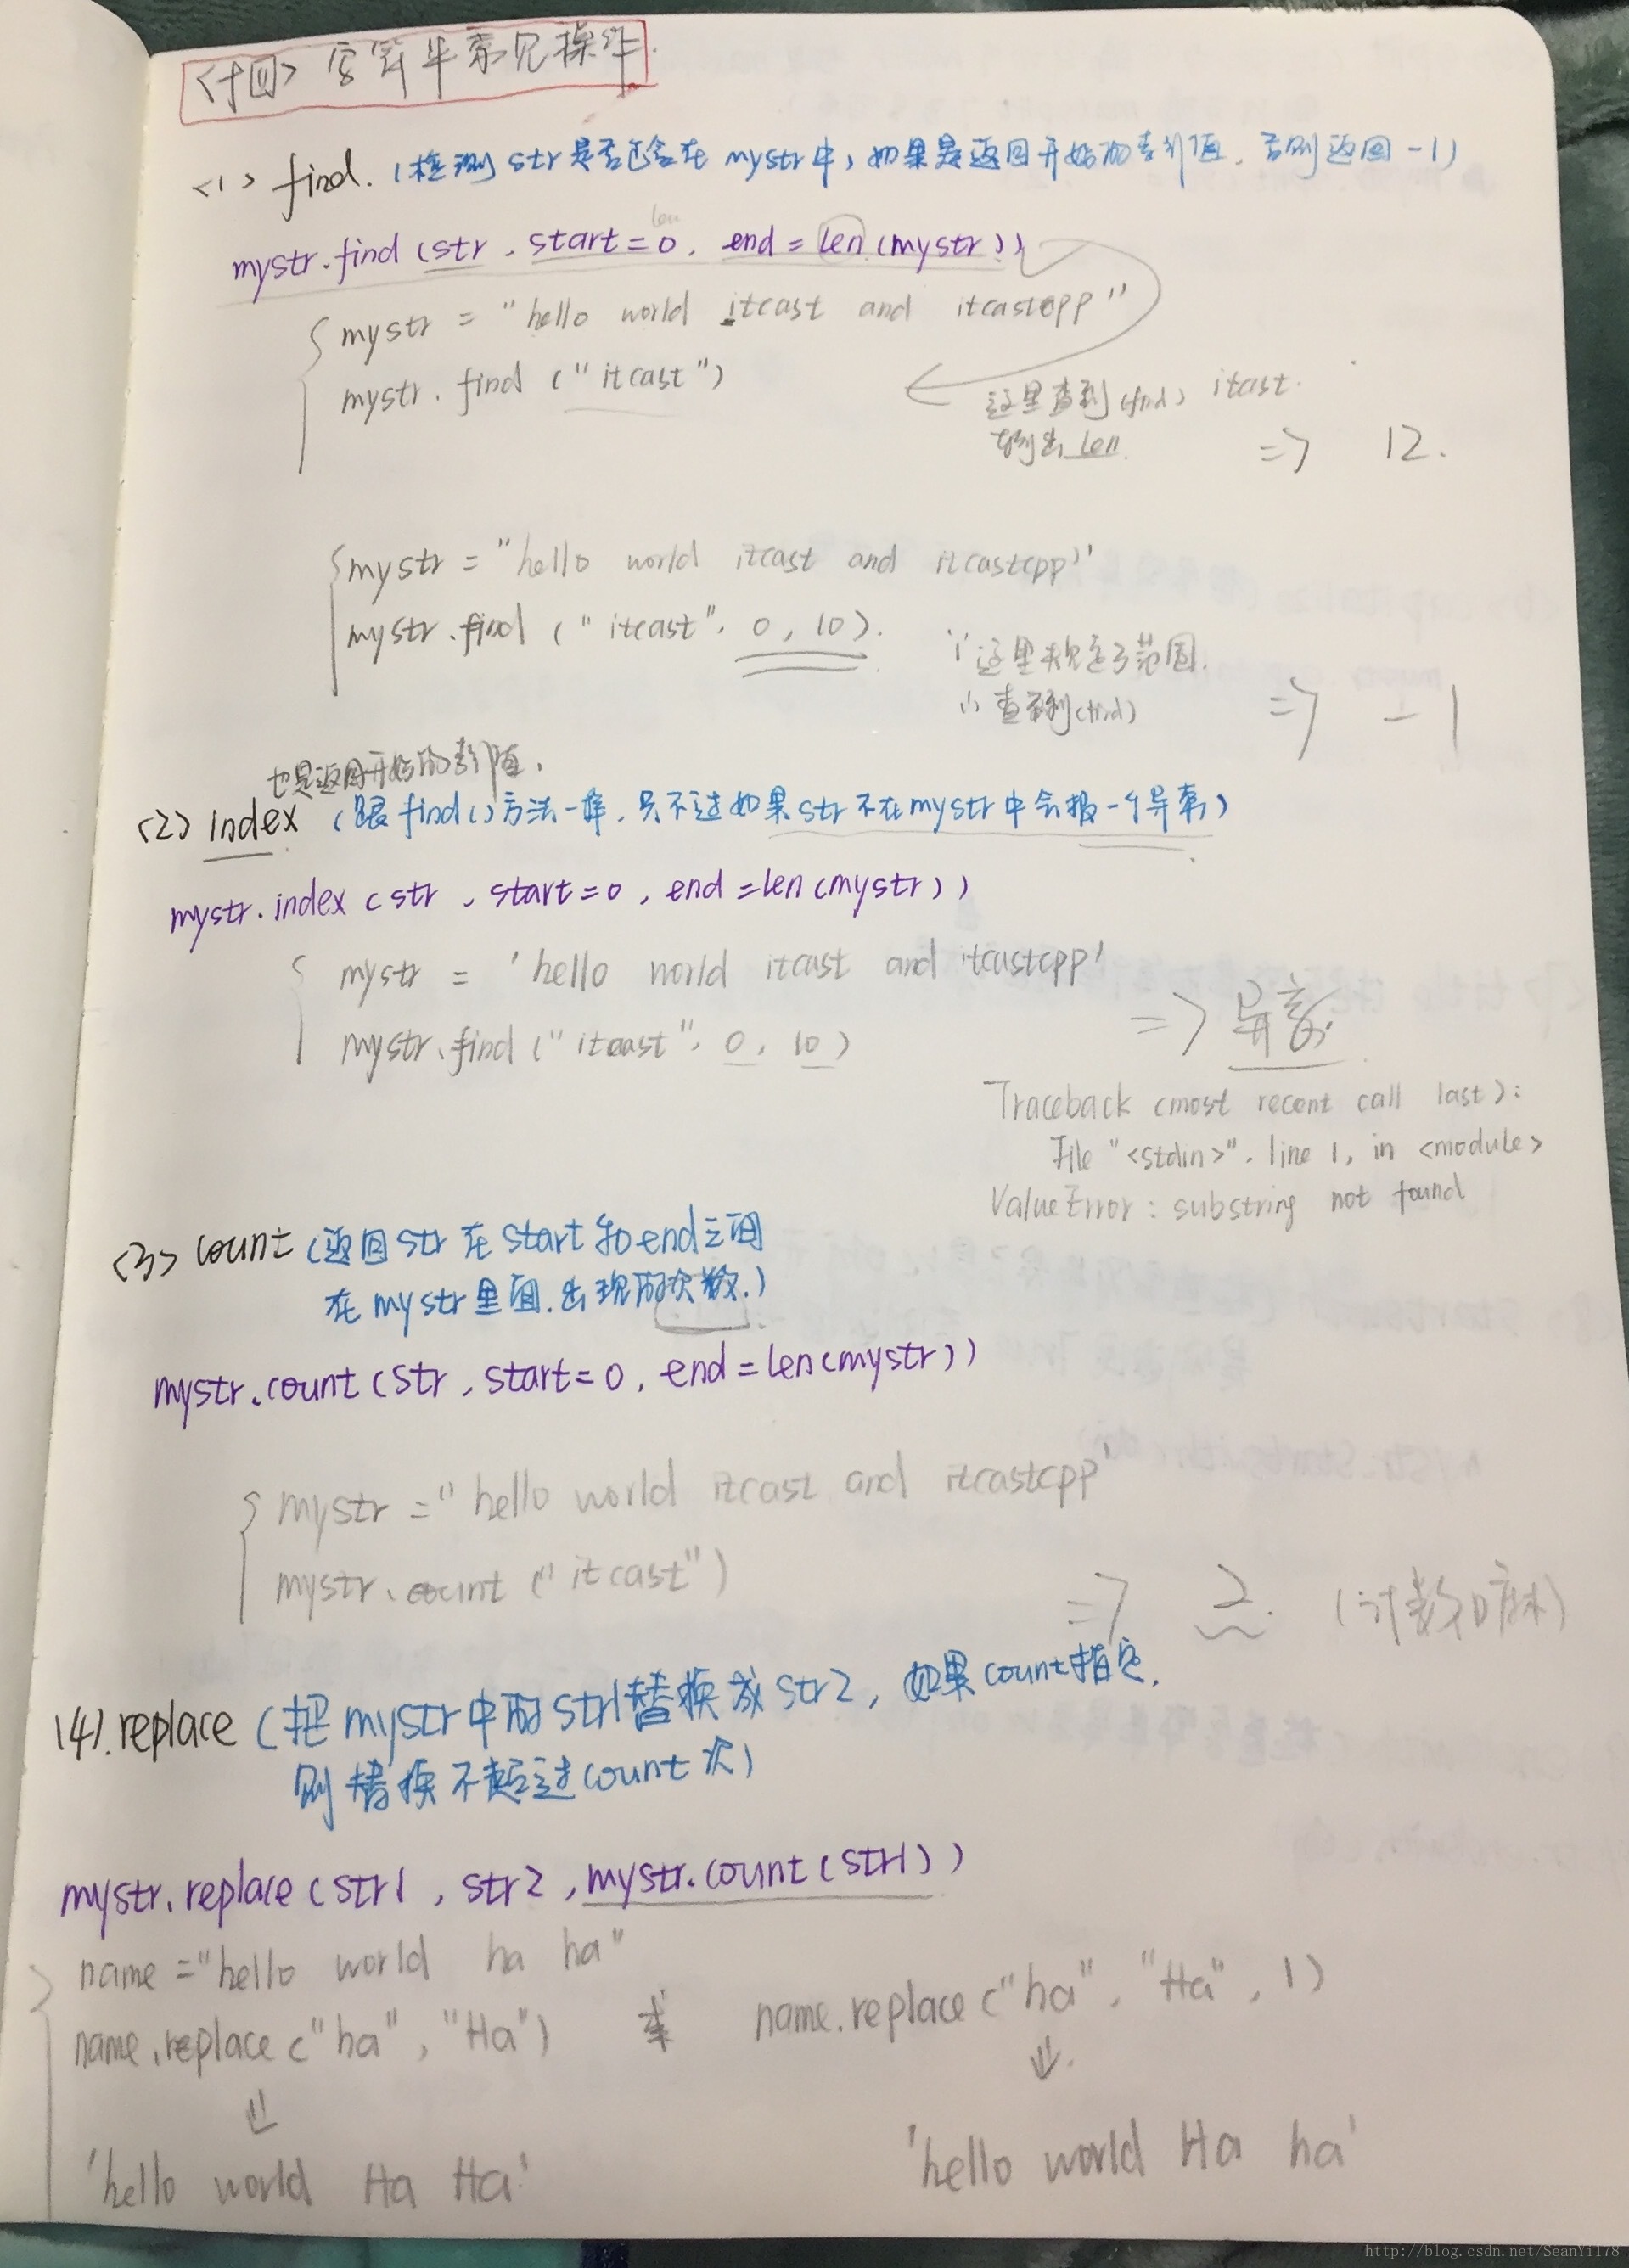 <十四> 字符串常见操作.
<1> find. (检测 str 是否包含在 mystr中, 如果是返回开始的索引值, 否则返回 -1)
len
mystr.find (str , start=0, end = len (mystr))
mystr = "hello world itcast and itcastcpp"
mystr. find ("itcast")
这里查到(find) itcast.
len.
=> 12.
mystr = "hello world itcast and itcastcpp"
mystr.find ("itcast", 0, 10).
这里规定了范围.
(find)
=> -1
也是返回开始的索引值.
<2> index (跟 find()方法一样, 只不过如果 str 不在 mystr中会报一个异常)
mystr.index (str , start=0 , end=len(mystr))
mystr = 'hello world itcast and itcastcpp'
mystr.find ("itcast", 0, 10)
=> 异常.
Traceback (most recent call last):
File "<stdin>", line 1, in <module>
ValueError : substring not found
<3> count (返回 str 在 start 和 end 之间
在 mystr里面.出现的次数.)
mystr.count (str , start=0, end=len(mystr))
mystr ="hello world itcast and itcastcpp"
mystr.count ("itcast")
=> 2. (计数)
(4).replace (把 mystr 中的 str1替换成 str2, 如果 count指定,
则替换不超过 count 次)
mystr.replace (str1 , str2 , mystr.count(str1))
name ="hello world ha ha"
name.replace ("ha", "Ha")
name.replace ("ha", "Ha", 1)
'hello world Ha Ha'
'hello world Ha ha'
http://blog.csdn.net/SeanYi178